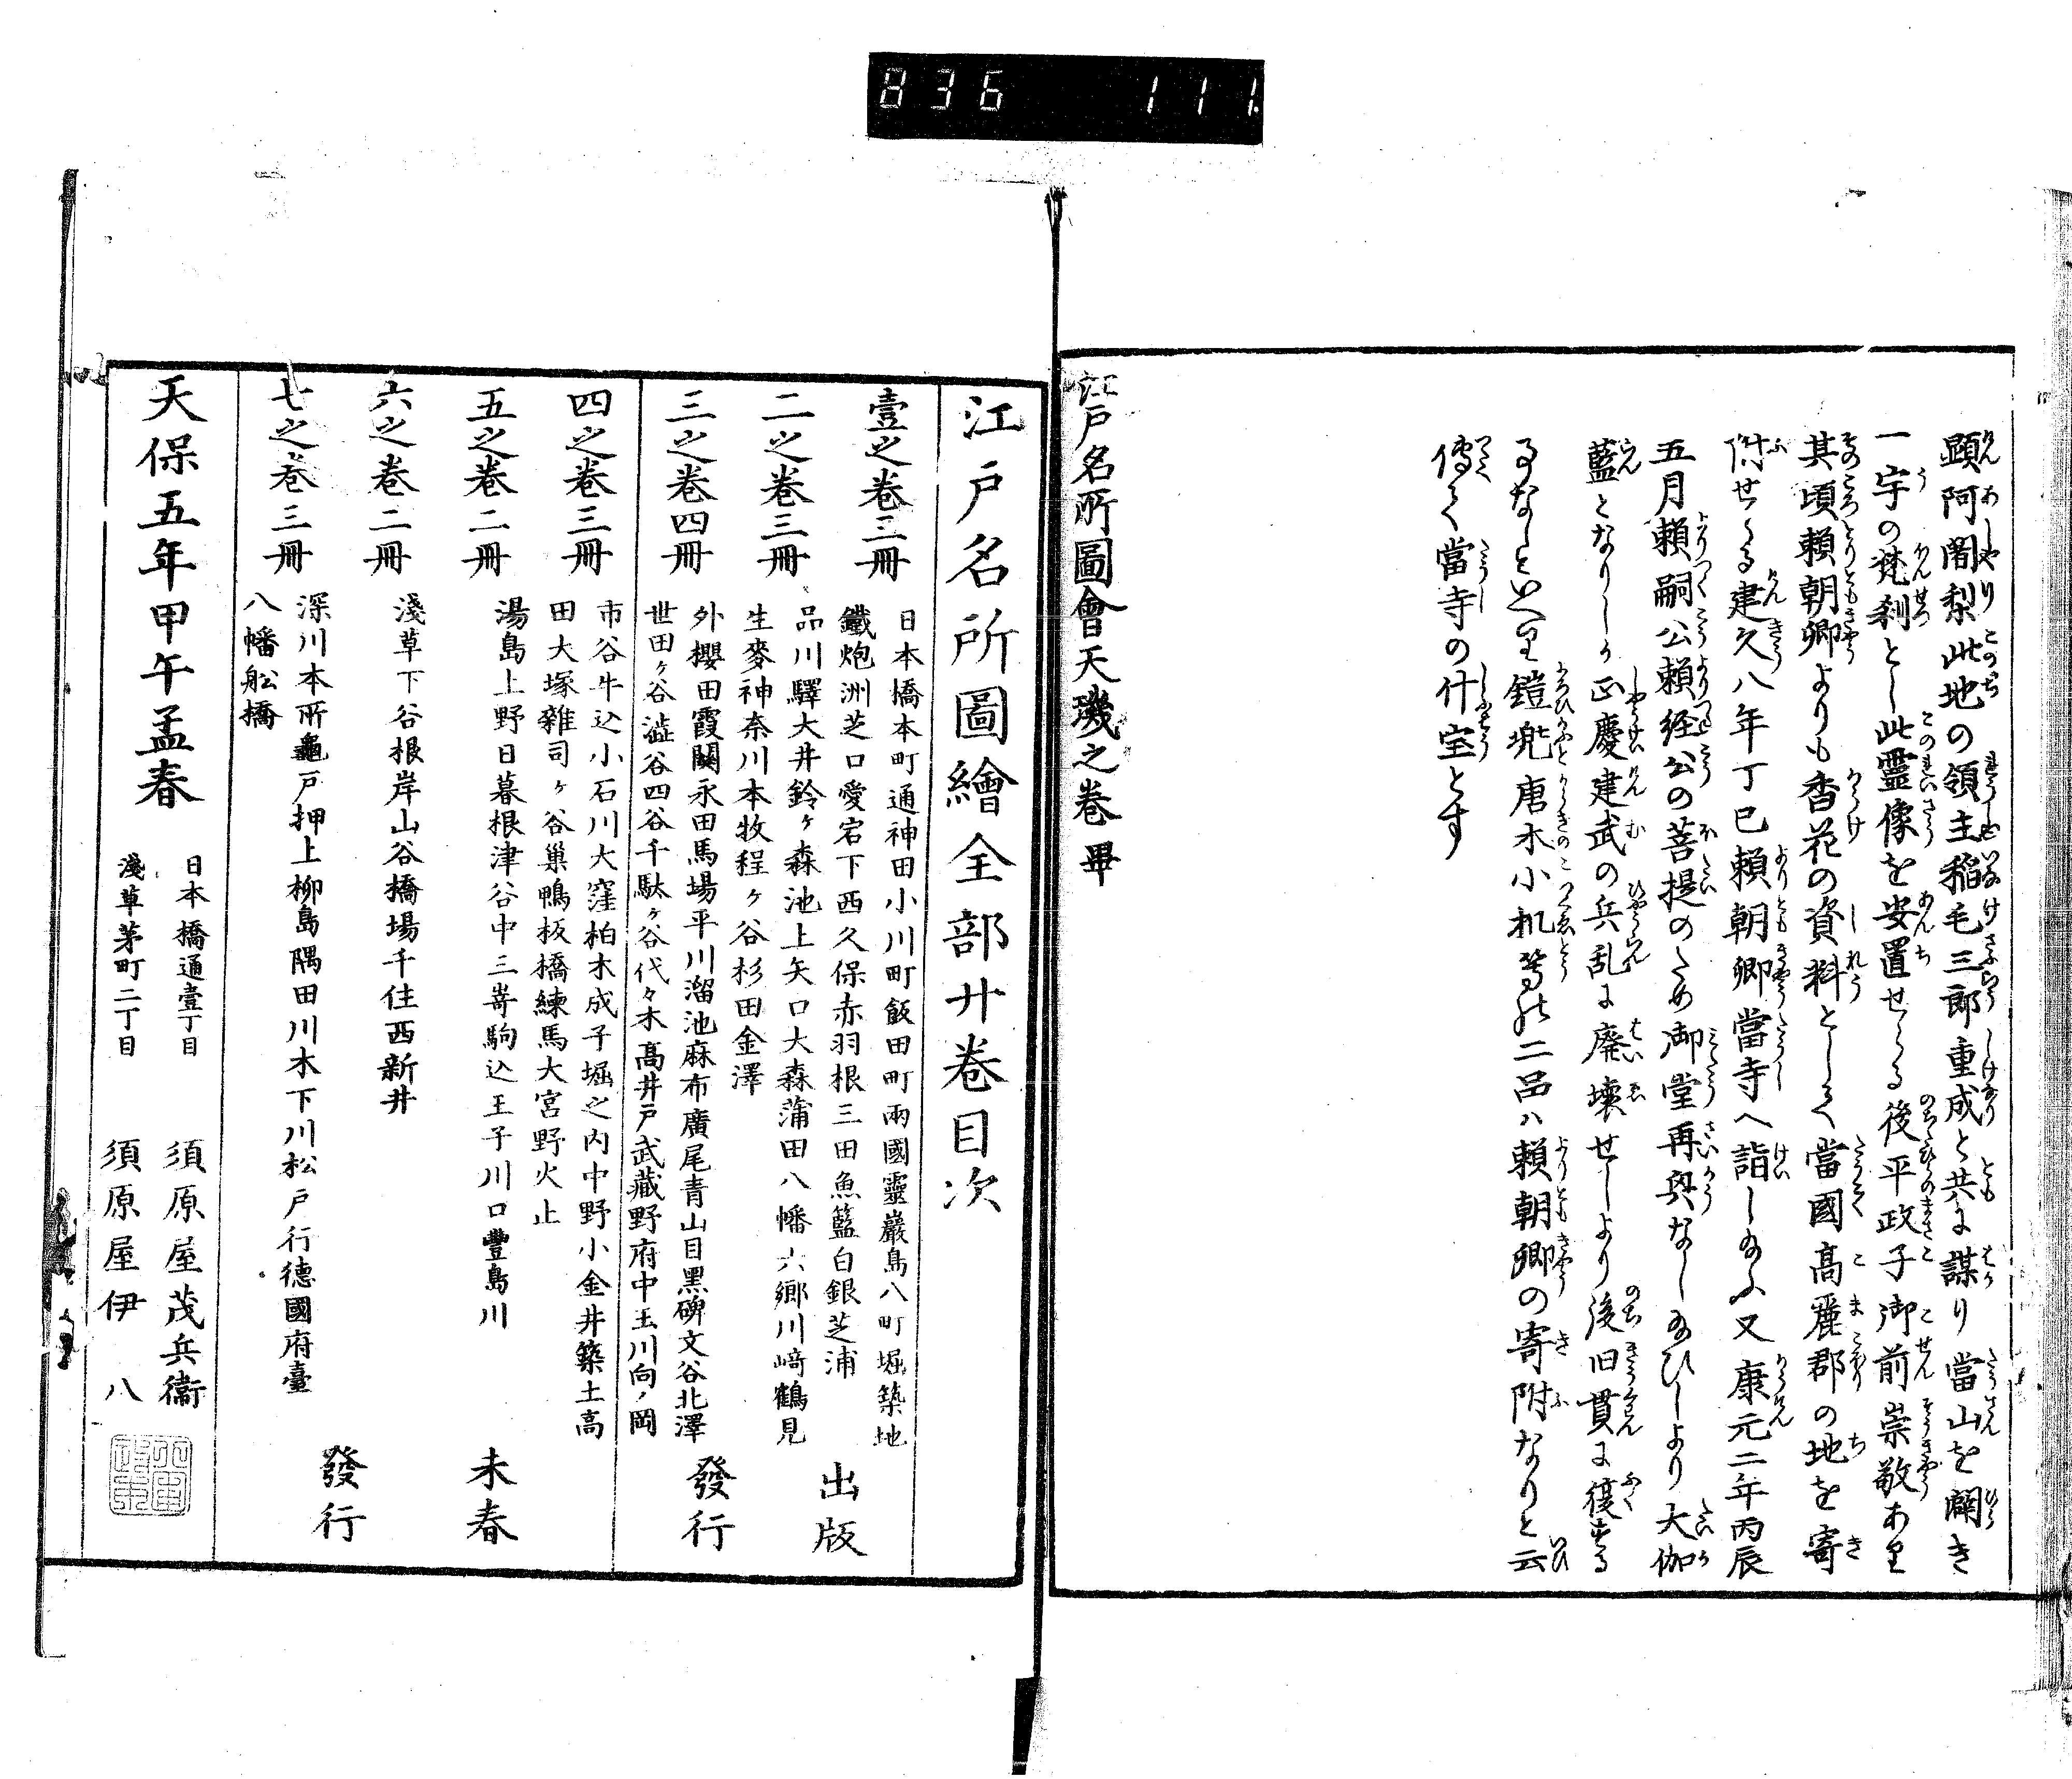 836 111
顕阿闍梨此地の領主稲毛三郎重成と共に謀り當山を闢き
一宇の梵刹とし此靈像を安置せらる後平政子御前崇敬あり
其頃頼朝卿よりも香花の資料として當國高麗郡の地を寄
附せらる建久八年丁巳頼朝卿當寺へ詣し給ふ又康元二年丙辰
五月頼嗣公頼経公の菩提のため御堂再興なし給ひしより大伽
藍となりしか正慶建武の兵乱に廃壊せしより後旧貫に復する
事なしといへり鎧兜唐木小机等の二品ハ頼朝卿の寄附なりと云
傳へて當寺の什宝とす
江戸名所圖會天璣之巻畢
江戸名所圖繪全部廿巻目次
壹之巻三冊 日本橋本町通神田小川町飯田町兩國靈巖島八町堀築地
鐵炮洲芝口愛宕下西久保赤羽根三田魚籃白銀芝浦
二之巻三冊 品川驛大井鈴ヶ森池上矢口大森蒲田八幡六郷川﨑鶴見
生麥神奈川本牧程ヶ谷杉田金澤
三之巻四冊 外櫻田霞關永田馬場平川溜池麻布廣尾青山目黒碑文谷北澤
世田ヶ谷澁谷四谷千駄ヶ谷代々木高井戸武藏野府中玉川向ノ岡
四之巻三冊 市谷牛込小石川大窪柏木成子堀之内中野小金井築土高
田大塚雜司ヶ谷巢鴨板橋練馬大宮野火止
五之巻二冊 湯島上野日暮根津谷中三嵜駒込王子川口豐島川
六之巻二冊 淺草下谷根岸山谷橋場千住西新井
七之巻三冊 深川本所龜戸押上柳島隅田川木下川松戸行德國府臺
八幡舩橋
出版
發行
未春
發行
天保五年甲午孟春
日本橋通壹丁目 須原屋茂兵衞
淺草茅町二丁目 須原屋伊八